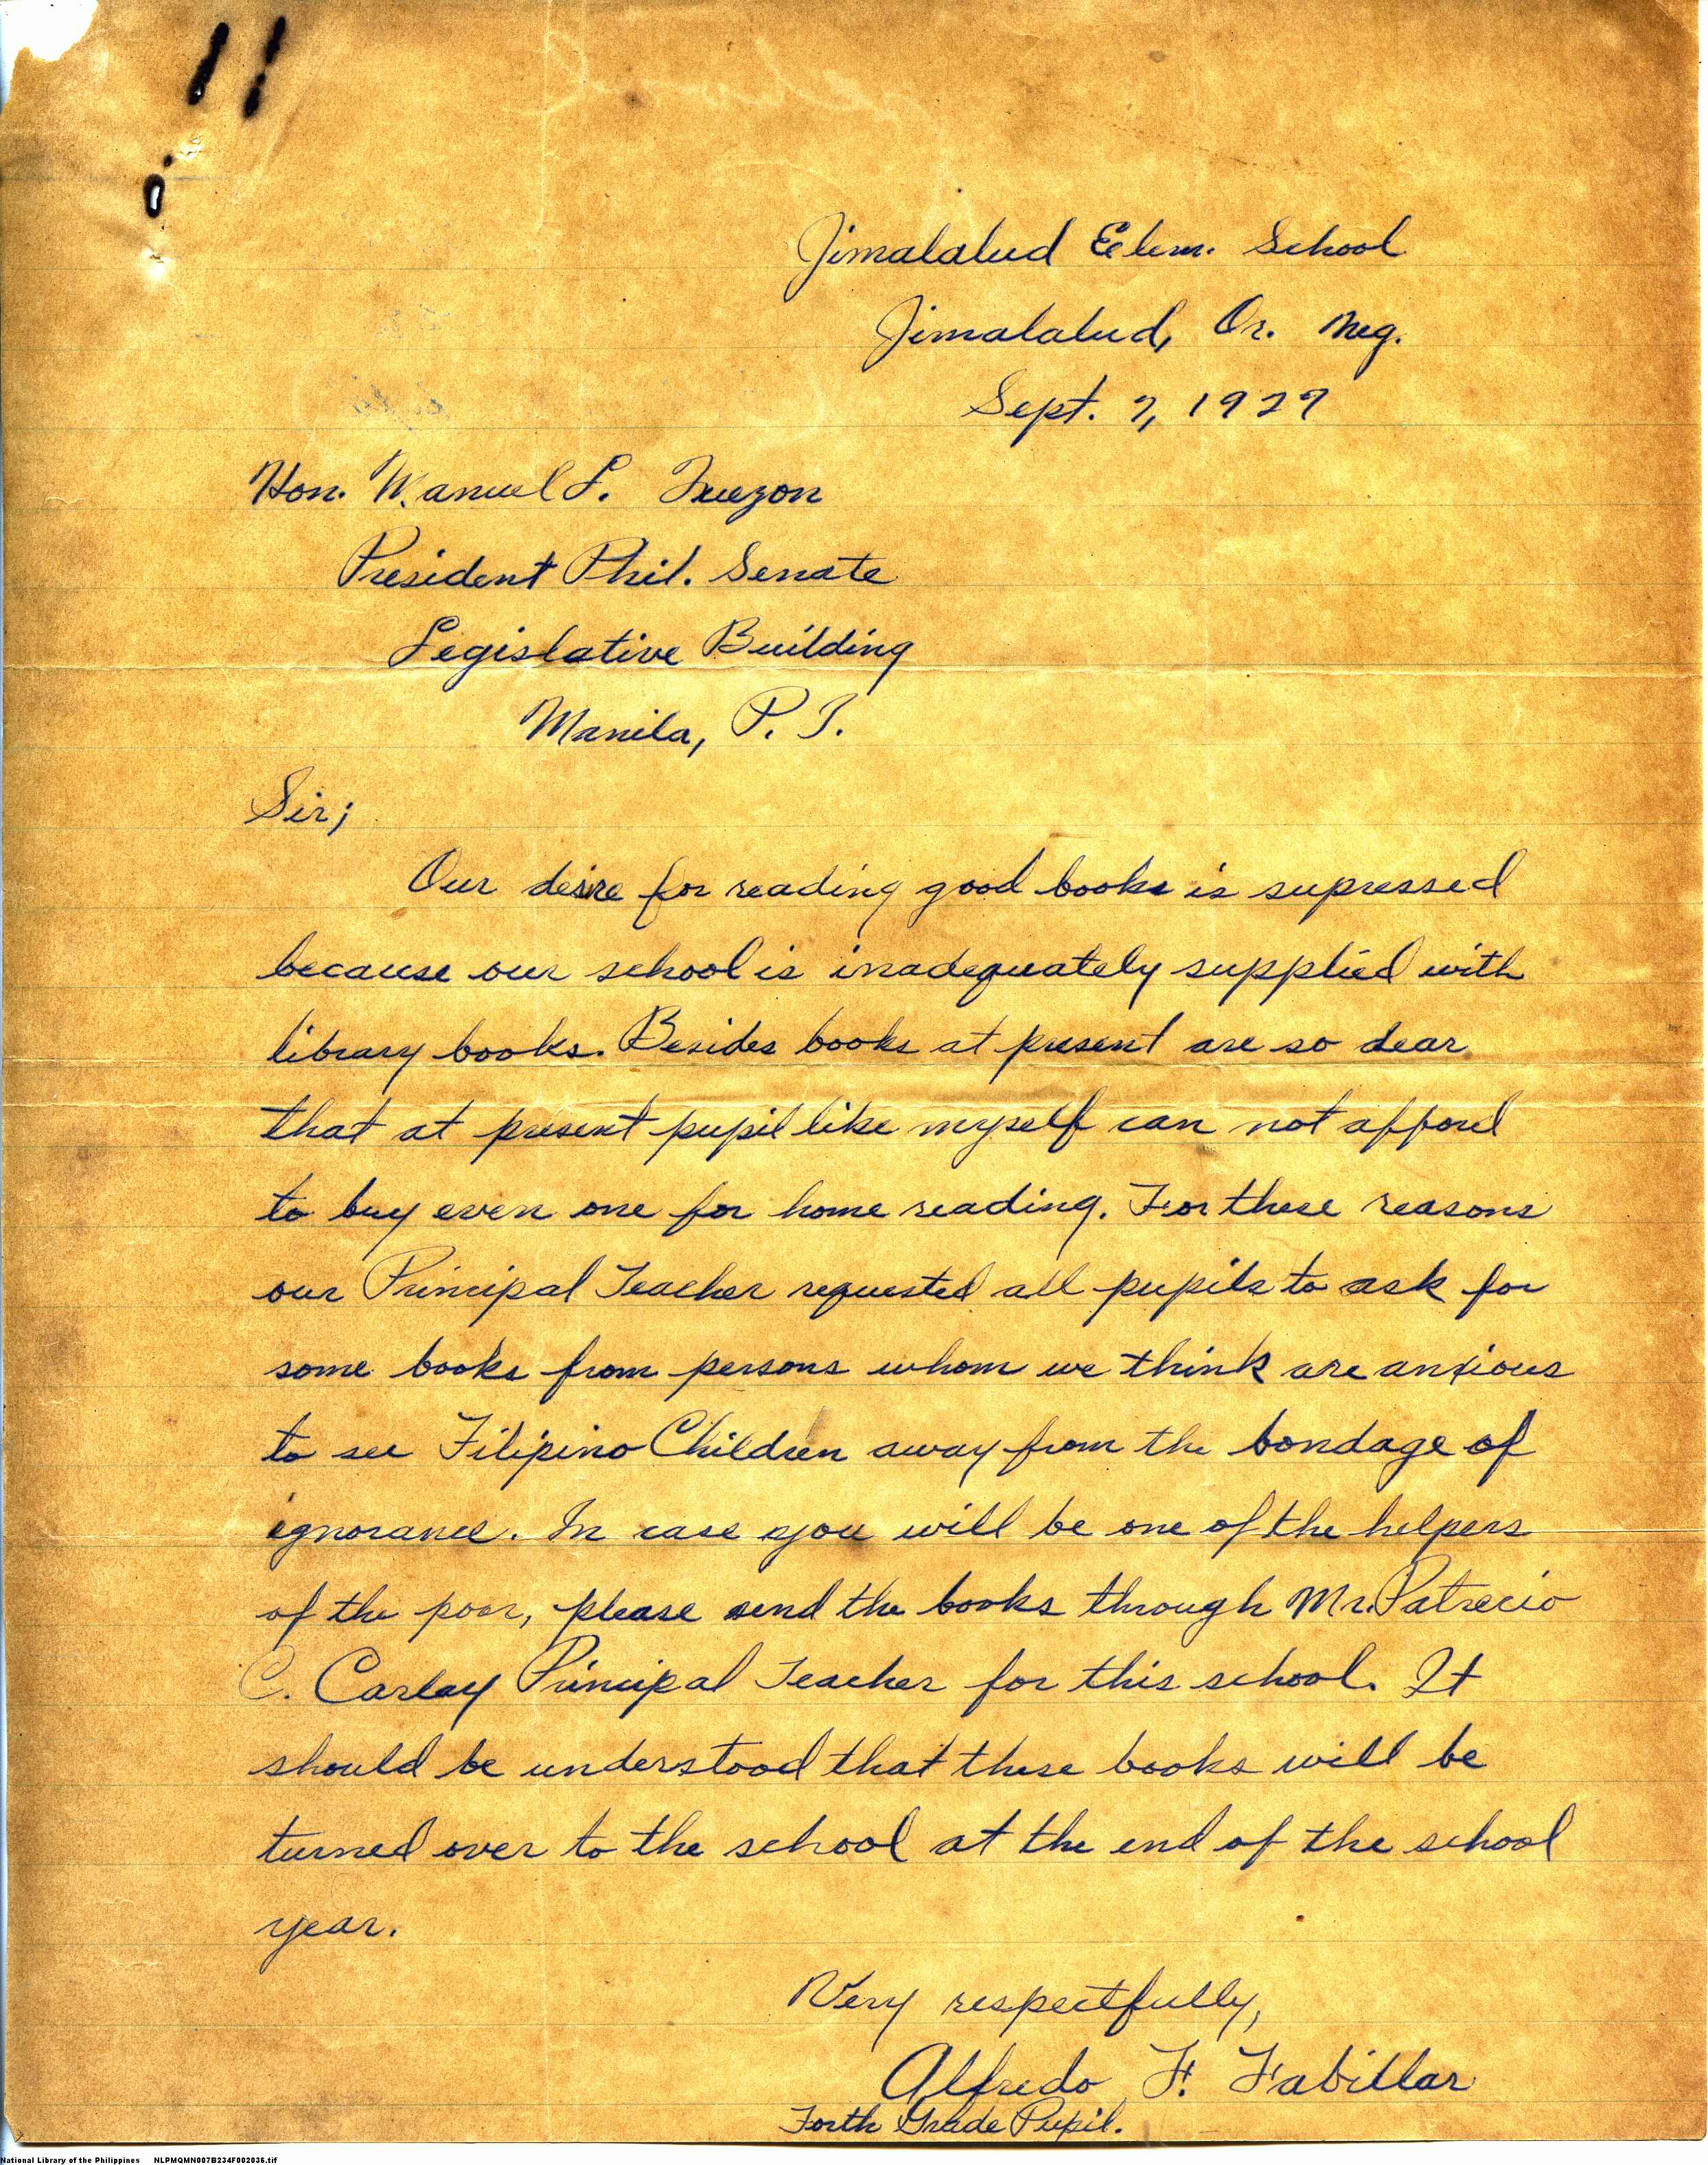 Jimalalud Eelem. School
Jimalalud, Or. Neg.
Sept. 7, 1927
Hon. Manuel L. Quezon
President Phil. Senate
Legislative Building
Manila, P. I.
Sir;
Our desire for reading good books is supressed
because our school is inadequately supplied with
library books. Besides books at present are so dear
that at present pupil like myself can not afford
to buy even one for home reading. For these reasons
our Principal Teacher requested all pupils to ask for
some books from persons whom we think are anxious
to see Filipino Children away from the bondage of
ignorance. In case you will be one of the helpers
of the poor, please send the books through Mr. Patrecio
C. Carlay Principal Teacher for this school. It
should be understood that these books will be
turned over to the school at the end of the school
year.
Very respectfully,
Alfredo F. Fabillar
Forth Grade Pupil.
National Library of the Philippines NLPMQMN007B234F002036.tif